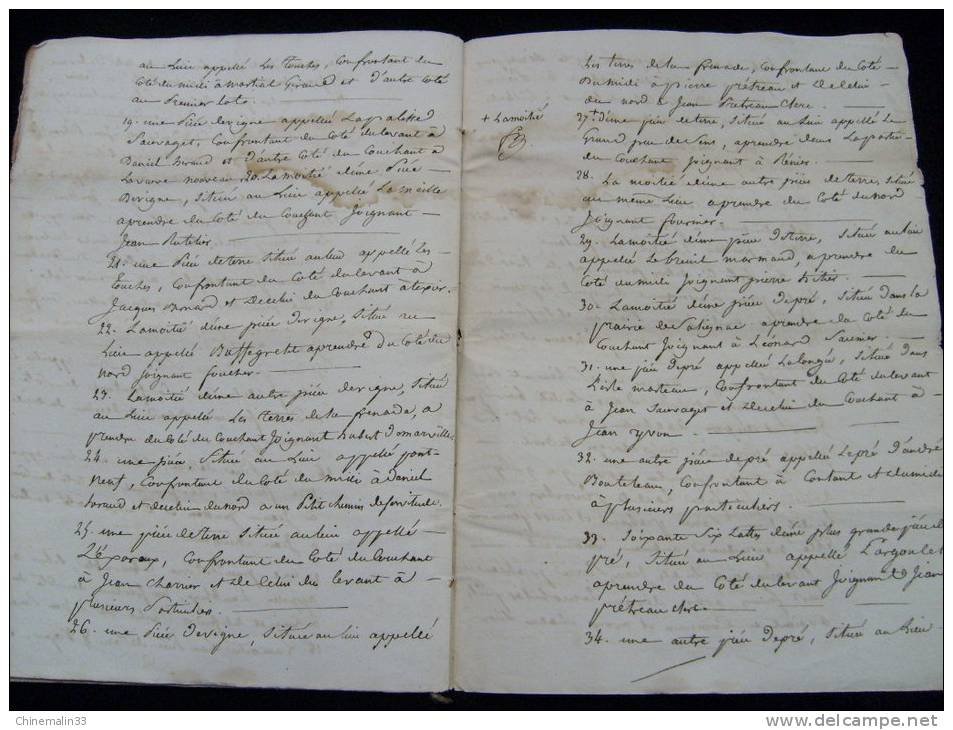 au Lieu appellé Les Touches, Confrontant du
Coté du midi à martial Giraud et d'autre Coté
au Premier Lots.
19. une Piéce de vigne appellée
Sauvaget, Confrontant du Coté du levant à
Daniel Biraud et d'autre Coté du Couchant à
nouveau 20. La moitié d'une Piéce
De vigne, Située au Lieu appellé La
aprendre du Coté du Couchant Joignant
Jean
21. une Piéce de terre Située au Lieu appellé Les
Touches, Confrontant du Coté du levant à
Jacques Bernard et de celui du Couchant à
22. La moitié d'une piéce De vigne, Située au
Lieu appellé aprendre du Coté du
nord Joignant foucher.
23. La moitié d'une autre piéce de vigne, Située
au Lieu appellé Les Terres de la frenade, a
prendre du Coté du Couchant Joignant
24. une piéce, Située au Lieu appellé pont-
neuf, Confrontant du Coté du midi à Daniel
biraud et de celui du nord a un Petit chemin de servitude.
25. une piéce de terre Située au lieu appellé
Confrontant du Coté du Couchant
à Jean Charrier et de Celui du levant à
plusieurs Particuliers.
26. une Piéce De vigne, Située au Lieu appellé
Les terres de la frenade, Confrontant du Coté
Du midi à pierre prétreau et de Celui
du nord à Jean Pretreau Clerc.
+ La moitié
27. + d'une piéce de terre, Située au Lieu appellé Le
Grand pré aprendre dans La partie
du Couchant Joignant à Rénier.
28. La moitié d'une autre piéce de terre, Située
au même Lieu, aprendre du Coté du nord
Joignant fournier.
29. La moitié d'une piéce de terre, Située au Lieu
appellé Le breuil marmaud, a prendre du
Coté du midi Joignant pierre
30. La moitié d'une piéce De pré, Située Dans la
prairie de Salignac aprendre du Coté du
Couchant Joignant à Léonard Saunier.
31. une piéce De pré appellé La longée, Située Dans
L'isle marteau, Confrontant du Coté du levant
à Jean Sauvaget et de celui du Couchant à
Jean yvon.
32. une autre piéce de pré appellée Le pré d'andré
Bouteleau, Confrontant à Contant et du midi
à plusieurs particuliers.
33. Soixante Six Lattes d'une plus grande piéce de
pré, Située au Lieu appellé L'argoulet
aprendre du Coté du levant Joignant à Jean
prétreau clerc.
34. une autre piéce De pré, Située au Lieu
Chinemalin33
www.delcampe.net